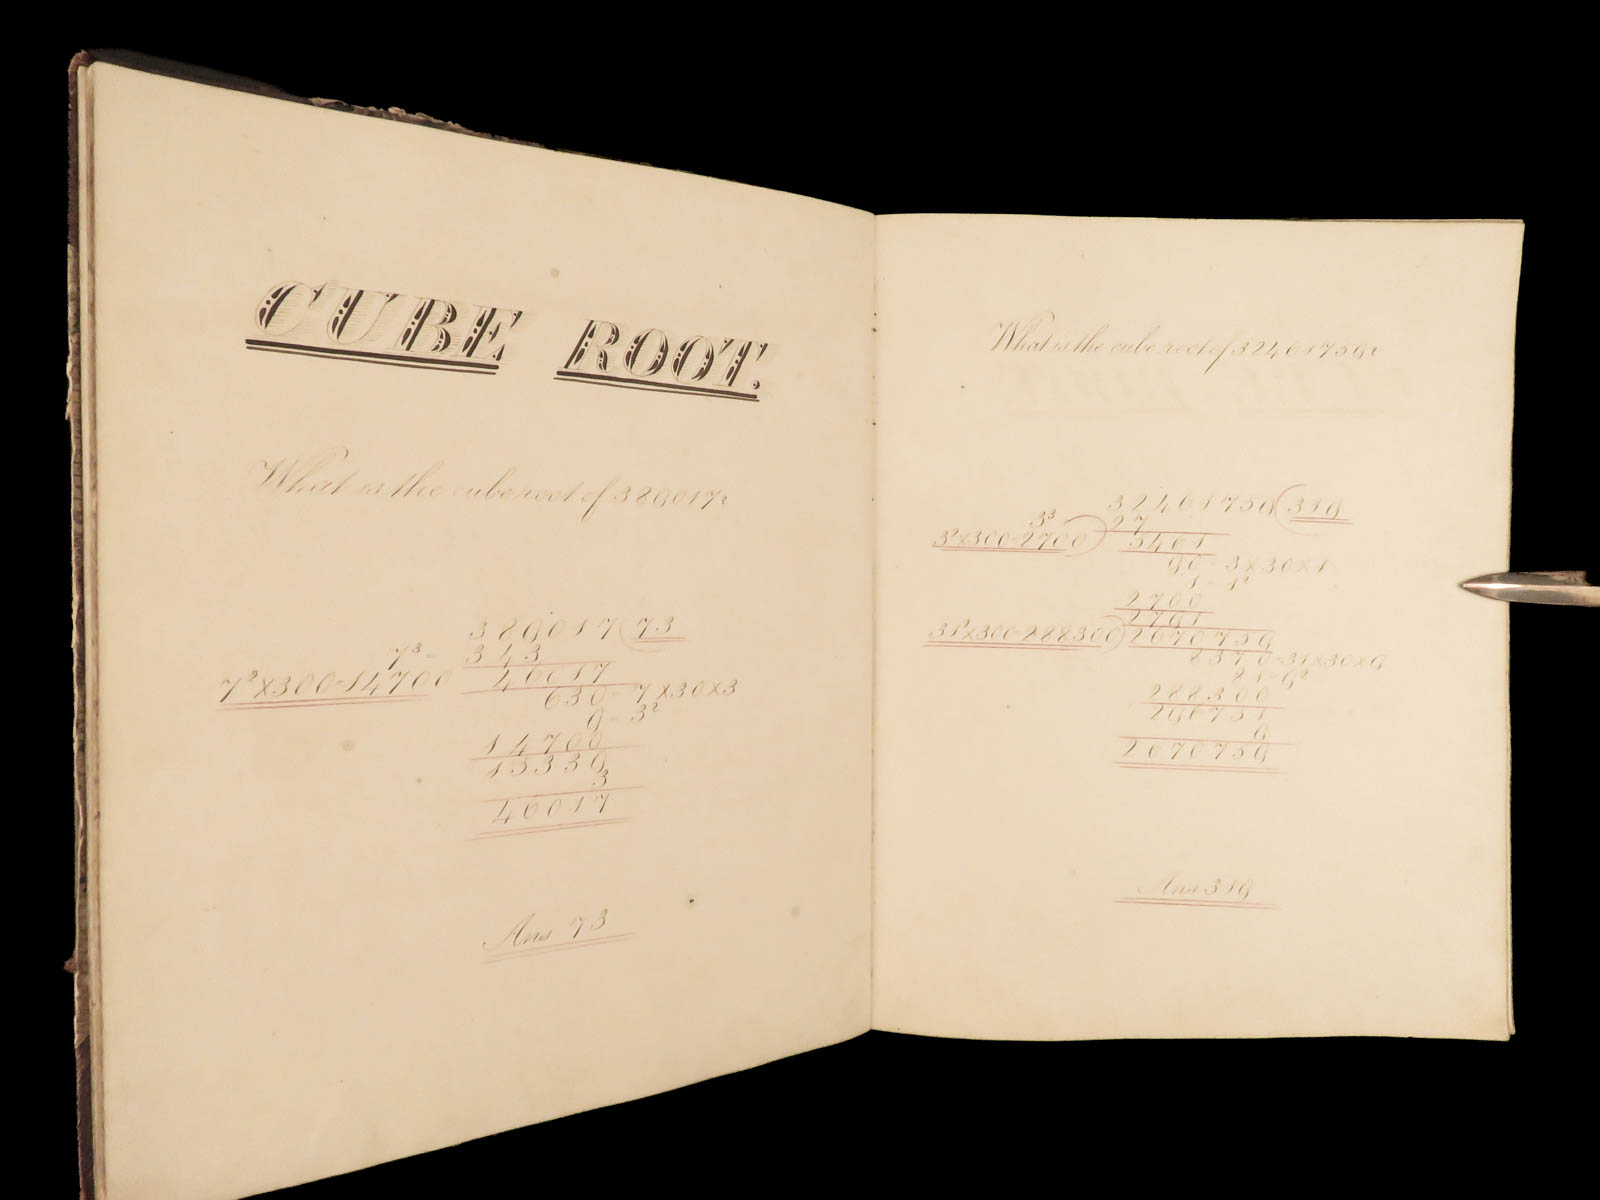 CUBE ROOT.
What is the cube root of 389017?
389017(73
7³= 343
7²x300=14700 46017
630=7x30x3
9=3²
14700
15339
3
46017
Ans 73
What is the cube root of 32461759?
32461759(319
3³ 27
3²x300=2700) 5461
90=3x30x1
1=1²
2700
2791
31²x300=288300) 2670759
8370=31x30x9
81=9²
288300
296751
9
2670759
Ans 319